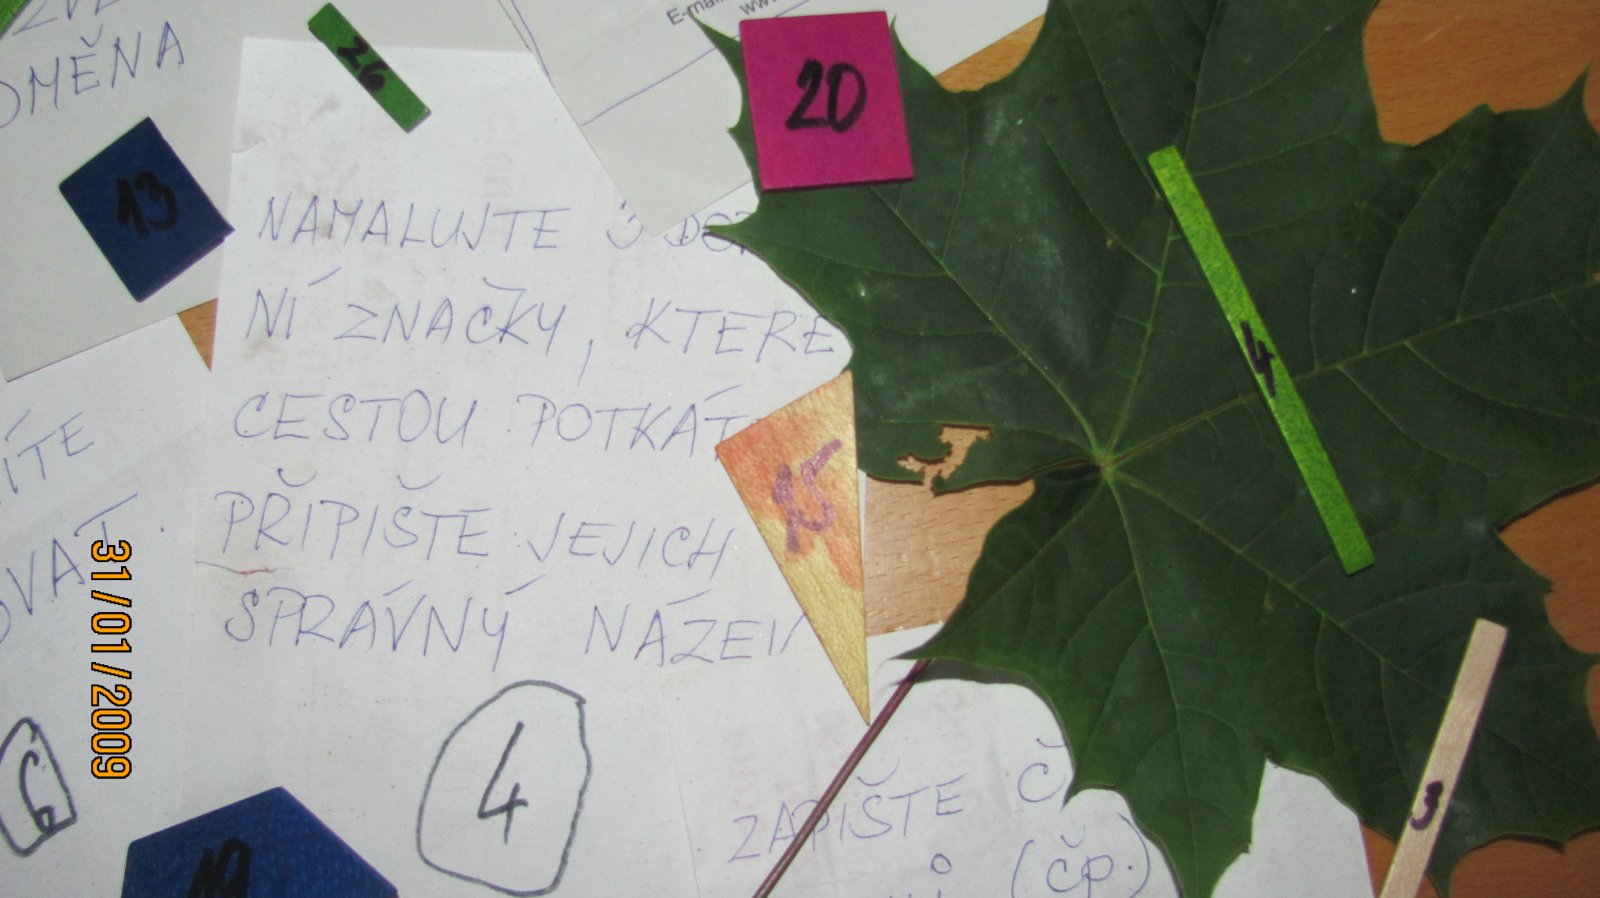 OMĚNA
E-mail
www
26
20
13
NAMALUJTE 3 DOP
NÍ ZNAČKY, KTERÉ
CESTOU POTKÁT
PŘIPIŠTE JEJICH
SPRÁVNÝ NÁZEV
4
15
4
ÍTE
OVAT.
31/01/2009
6
19
3
ZAPIŠTE Č
(čp.)